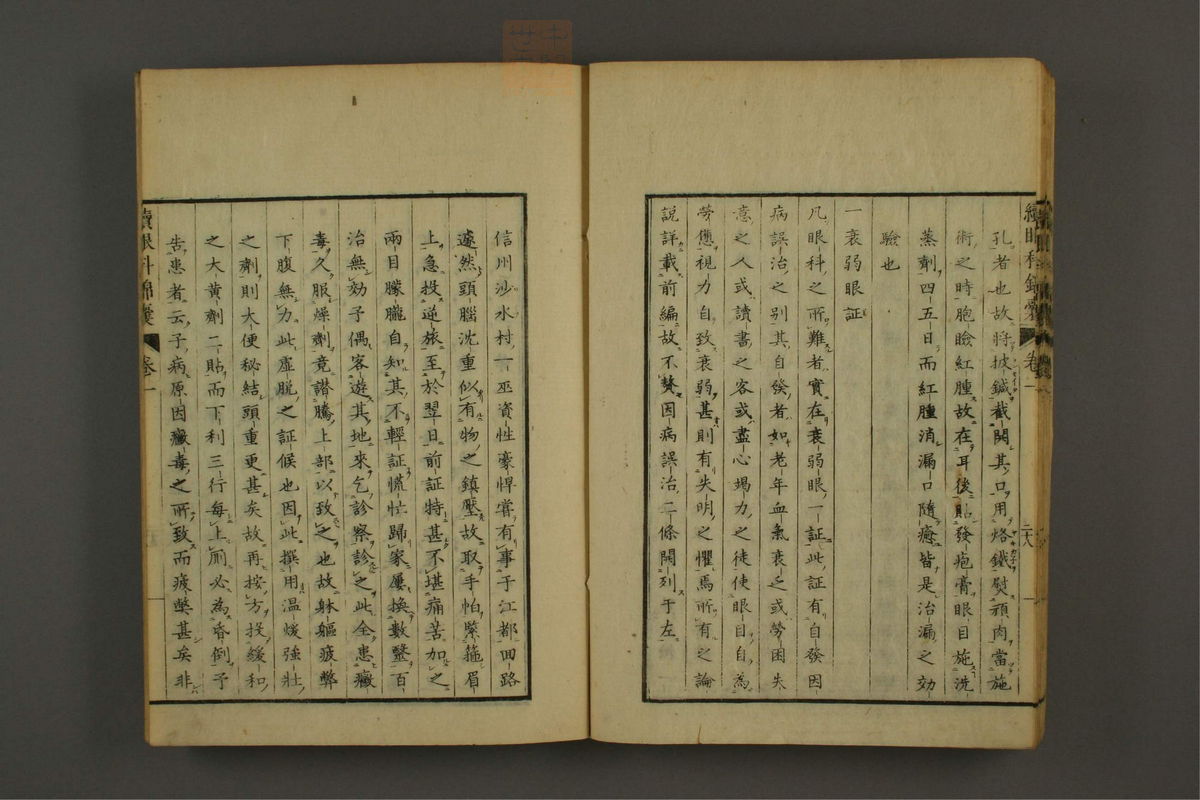 孔者也故將披鍼截開其口用烙鐵熨頑肉當施
術之時胞瞼紅腫故在耳後貼發疱膏眼目施洗
蒸劑四五日而紅腫消漏口隨癒皆是治漏之効
驗也
一衰弱眼証
凡眼科之所難者實在衰弱眼一証此証有自發因
病誤治之別其自發者如老年血氣衰乏或勞困失
意之人或讀書之客或盡心竭力之徒使眼目自為
勞憊視力自致衰弱甚則有失明之懼焉所有之論
說詳載前編故不贅因病誤治二條開列于左
信州沙水村一巫資性豪悍嘗有事于江都回路
遽然頭腦沈重似有物之鎮壓故取手帕緊箍眉
上急投逆旅至於翌日前証特甚不堪痛苦加之
兩目朦朧自知其不輕証慌忙歸家屢換數醫百
治無効予偶客遊其地來乞診察診之此全患黴
毒久服燥劑竟譛騰上部以致之也故躰軀疲弊
下腹無力此虛脫之証候也因此撰用温煖強壯
之劑則大便秘結頭重更甚矣故再按方投緩和
之大黄劑二貼而下利三行每上廁必為昏倒予
告患者云子病原因黴毒之所致而疲弊甚矣非
續眼科錦囊 卷一